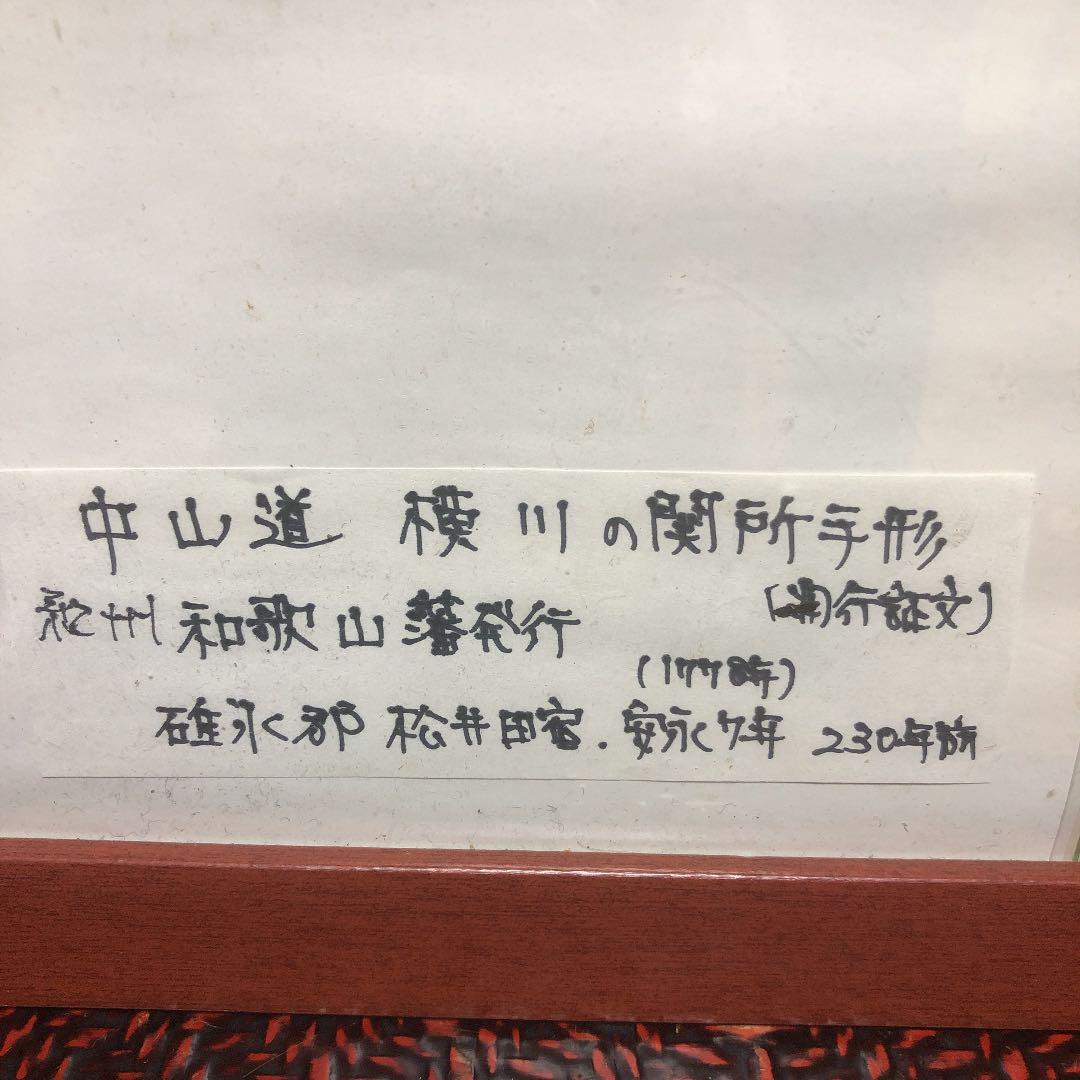 中山道 横川の関所手形
(通行証文)
紀州和歌山藩発行
(1778年)
碓氷郡 松井田宿.安永7年 230年前